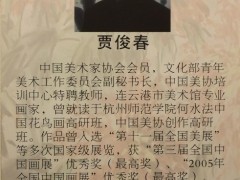 贾俊春
中国美术家协会会员，文化部青年
美术工作委员会副秘书长，中国美协培
训中心特聘教师，连云港市美术馆专业
画家，曾就读于杭州师范学院何水法中
国花鸟画高研班，中国美协创作高研
班。作品曾入选“第十一届全国美展”
等多次国家级展览，获“第三届全国中
国画展”优秀奖（最高奖）、“2005年
全国中国画展”优秀奖（最高奖）